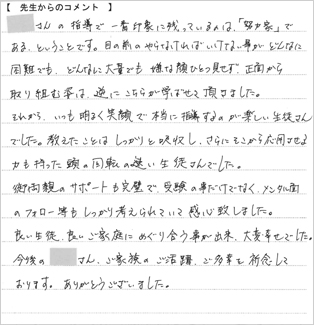 【 先生からのコメント 】
さんの指導で一番印象に残っているのは、「努力家」で
ある、ということです。目の前のやらなければいけない事がどんなに
困難でも、どんなに大量でも 嫌な顔ひとつ見せず、正面から
取り組む姿は、逆にこちらが学ばせて頂きました。
それから、いつも明るく笑顔で本当に指導するのが楽しい生徒さん
でした。教えたことはしっかりと吸収し、さらにそこから応用させる
力も持った頭の回転の速い生徒さんでした。
御両親のサポートも完璧で、受験の事だけでなく、メンタル面
のフォロー等もしっかり考えられていて感心致しました。
良い生徒、良いご家庭にめぐり合う事が出来、大変幸せでした。
今後の さん、ご家族のご活躍、ご多幸を祈念して
おります。ありがとうございました。